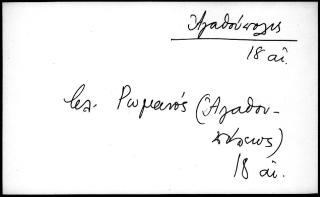 Ἀγαθούπολις
18 αἰ.
Ἱερ. Ρωμανός (Ἀγαθου-
πόλεως)
18 αἰ.